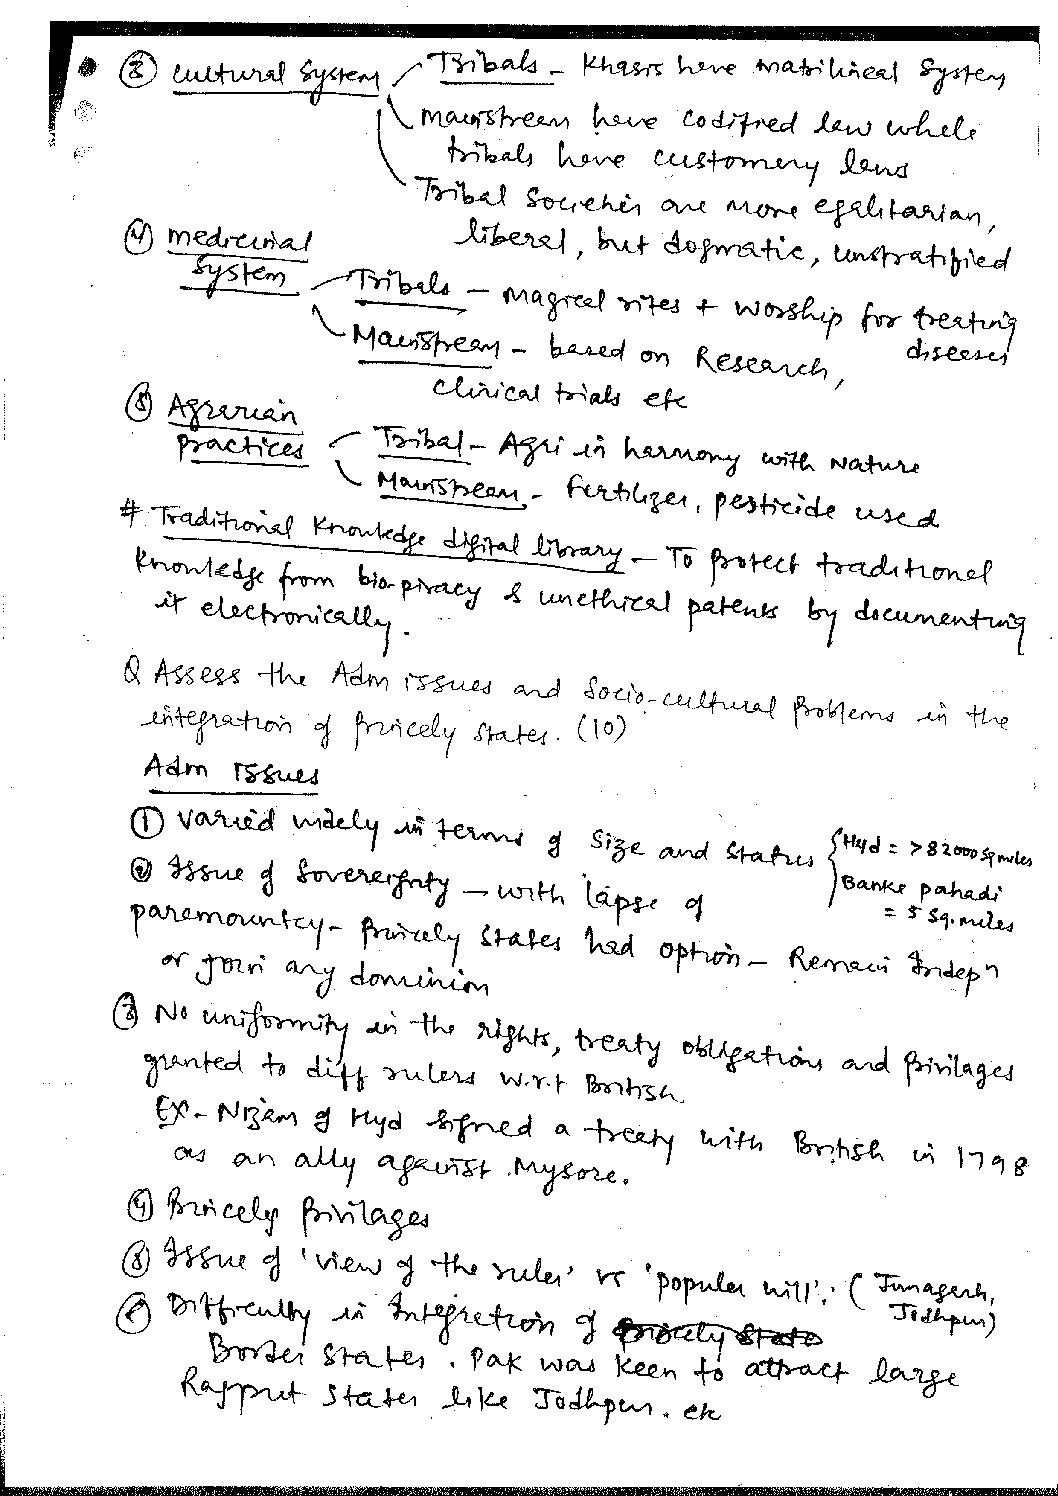 ③ Cultural System - Tribals - Khasis have matrilineal System
mainstream have codified law while
tribals have customery laws
Tribal Societies are more egalitarian,
liberal, but dogmatic, unstratified
④ medicinal
System - Tribals - magical rites + worship for treating
diseases
Mainstream - based on Research,
clinical trials etc
⑤ Agrarian
practices - Tribal - Agri in harmony with Nature
Mainstream - fertilizer, pesticide used
# Traditional Knowledge digital library - To protect traditional
knowledge from bio-piracy & unethical patents by documenting
it electronically.
Q Assess the Adm issues and Socio-cultural problems in the
integration of princely states. (10)
Adm issues
① Varied widely in terms of Size and Status { Hyd = >82000 sq miles
Banke pahadi
= 5 sq. miles
② Issue of Sovereignty - with lapse of
paramountcy - princely states had option - Remain Indepⁿ
or join any dominion
③ No uniformity in the rights, treaty obligations and privilages
granted to diff rulers w.r.t British.
Ex - Nizam of Hyd signed a treaty with British in 1798
as an ally against Mysore.
④ Princely privilages
⑤ Issue of 'view of the ruler' vs 'popular will'. (Junagarh,
Jodhpur)
⑥ Difficulty in Integration of princely state
Border states. Pak was keen to attract large
Rajput states like Jodhpur. etc